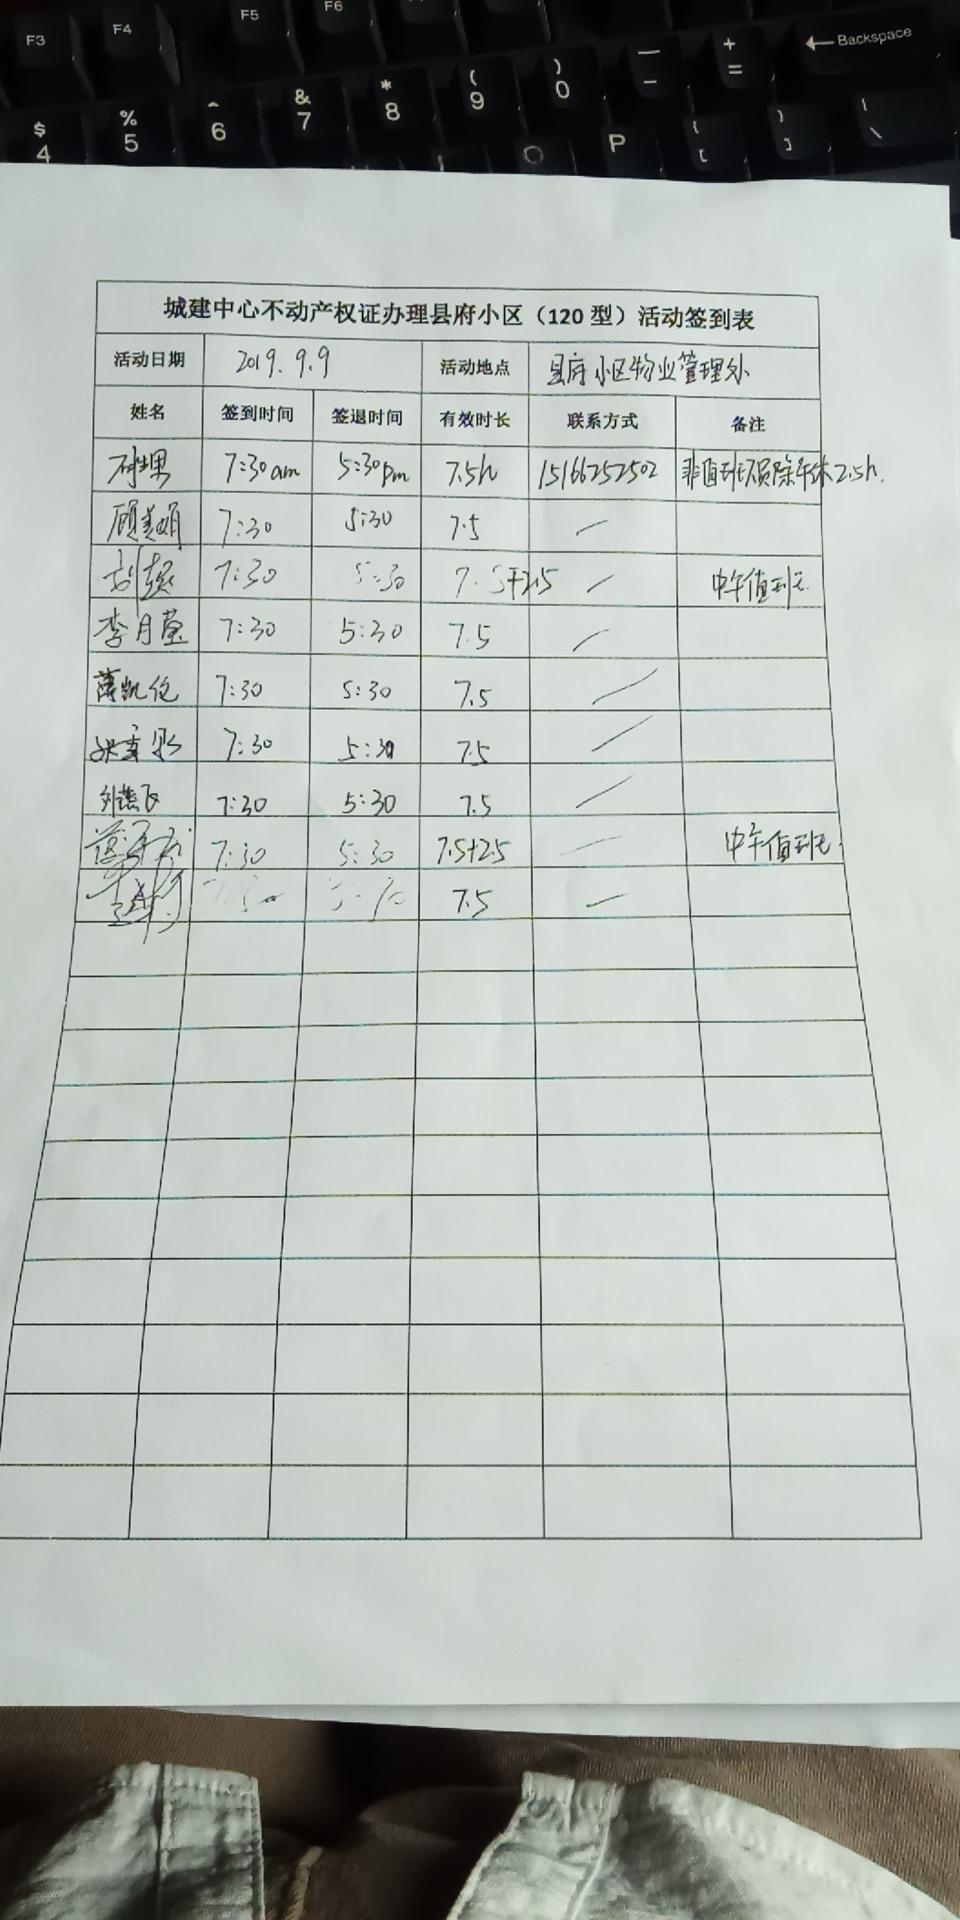 F3 F4 F5 F6
$ 4 % 5 ^ 6 & 7 * 8 ( 9 ) 0 — - + = ← Backspace
O P { [ } ] | \
城建中心不动产权证办理县府小区（120 型）活动签到表
活动日期 2019.9.9 活动地点 县府小区物业管理处
姓名 签到时间 签退时间 有效时长 联系方式 备注
7:30am 5:30pm 7.5h 15166252502 非值班须除午休2.5h.
顾美娟 7:30 5:30 7.5
7:30 5:30 7.5+2.5 中午值班.
李月莹 7:30 5:30 7.5
薄凯伦 7:30 5:30 7.5
7:30 5:30 7.5
刘燕飞 7:30 5:30 7.5
7:30 5:30 7.5+2.5 中午值班.
7.5